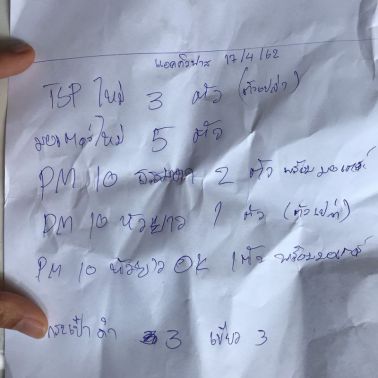 แอคติวาส 17/4/62
TSP ใหม่ 3 ตัว (ตัวเปล่า)
มอเตอร์ใหม่ 5 ตัว
PM 10 ธรรมดา 2 ตัว พร้อมมอเตอร์
PM 10 หัวยาว 1 ตัว (ตัวเปล่า)
PM 10 หัวยาว OK 1 ตัว พร้อมมอเตอร์
กระเป๋า ดำ 3 เขียว 3